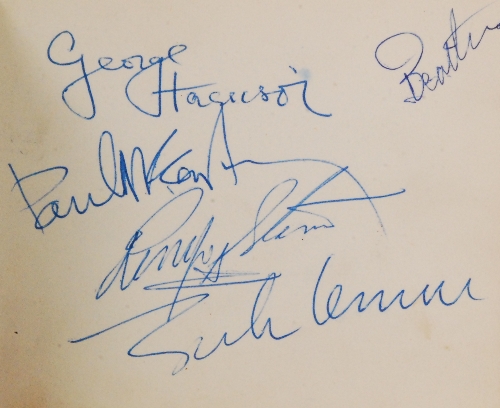 George Harrison
Paul McCartney
Ringo Starr
John Lennon